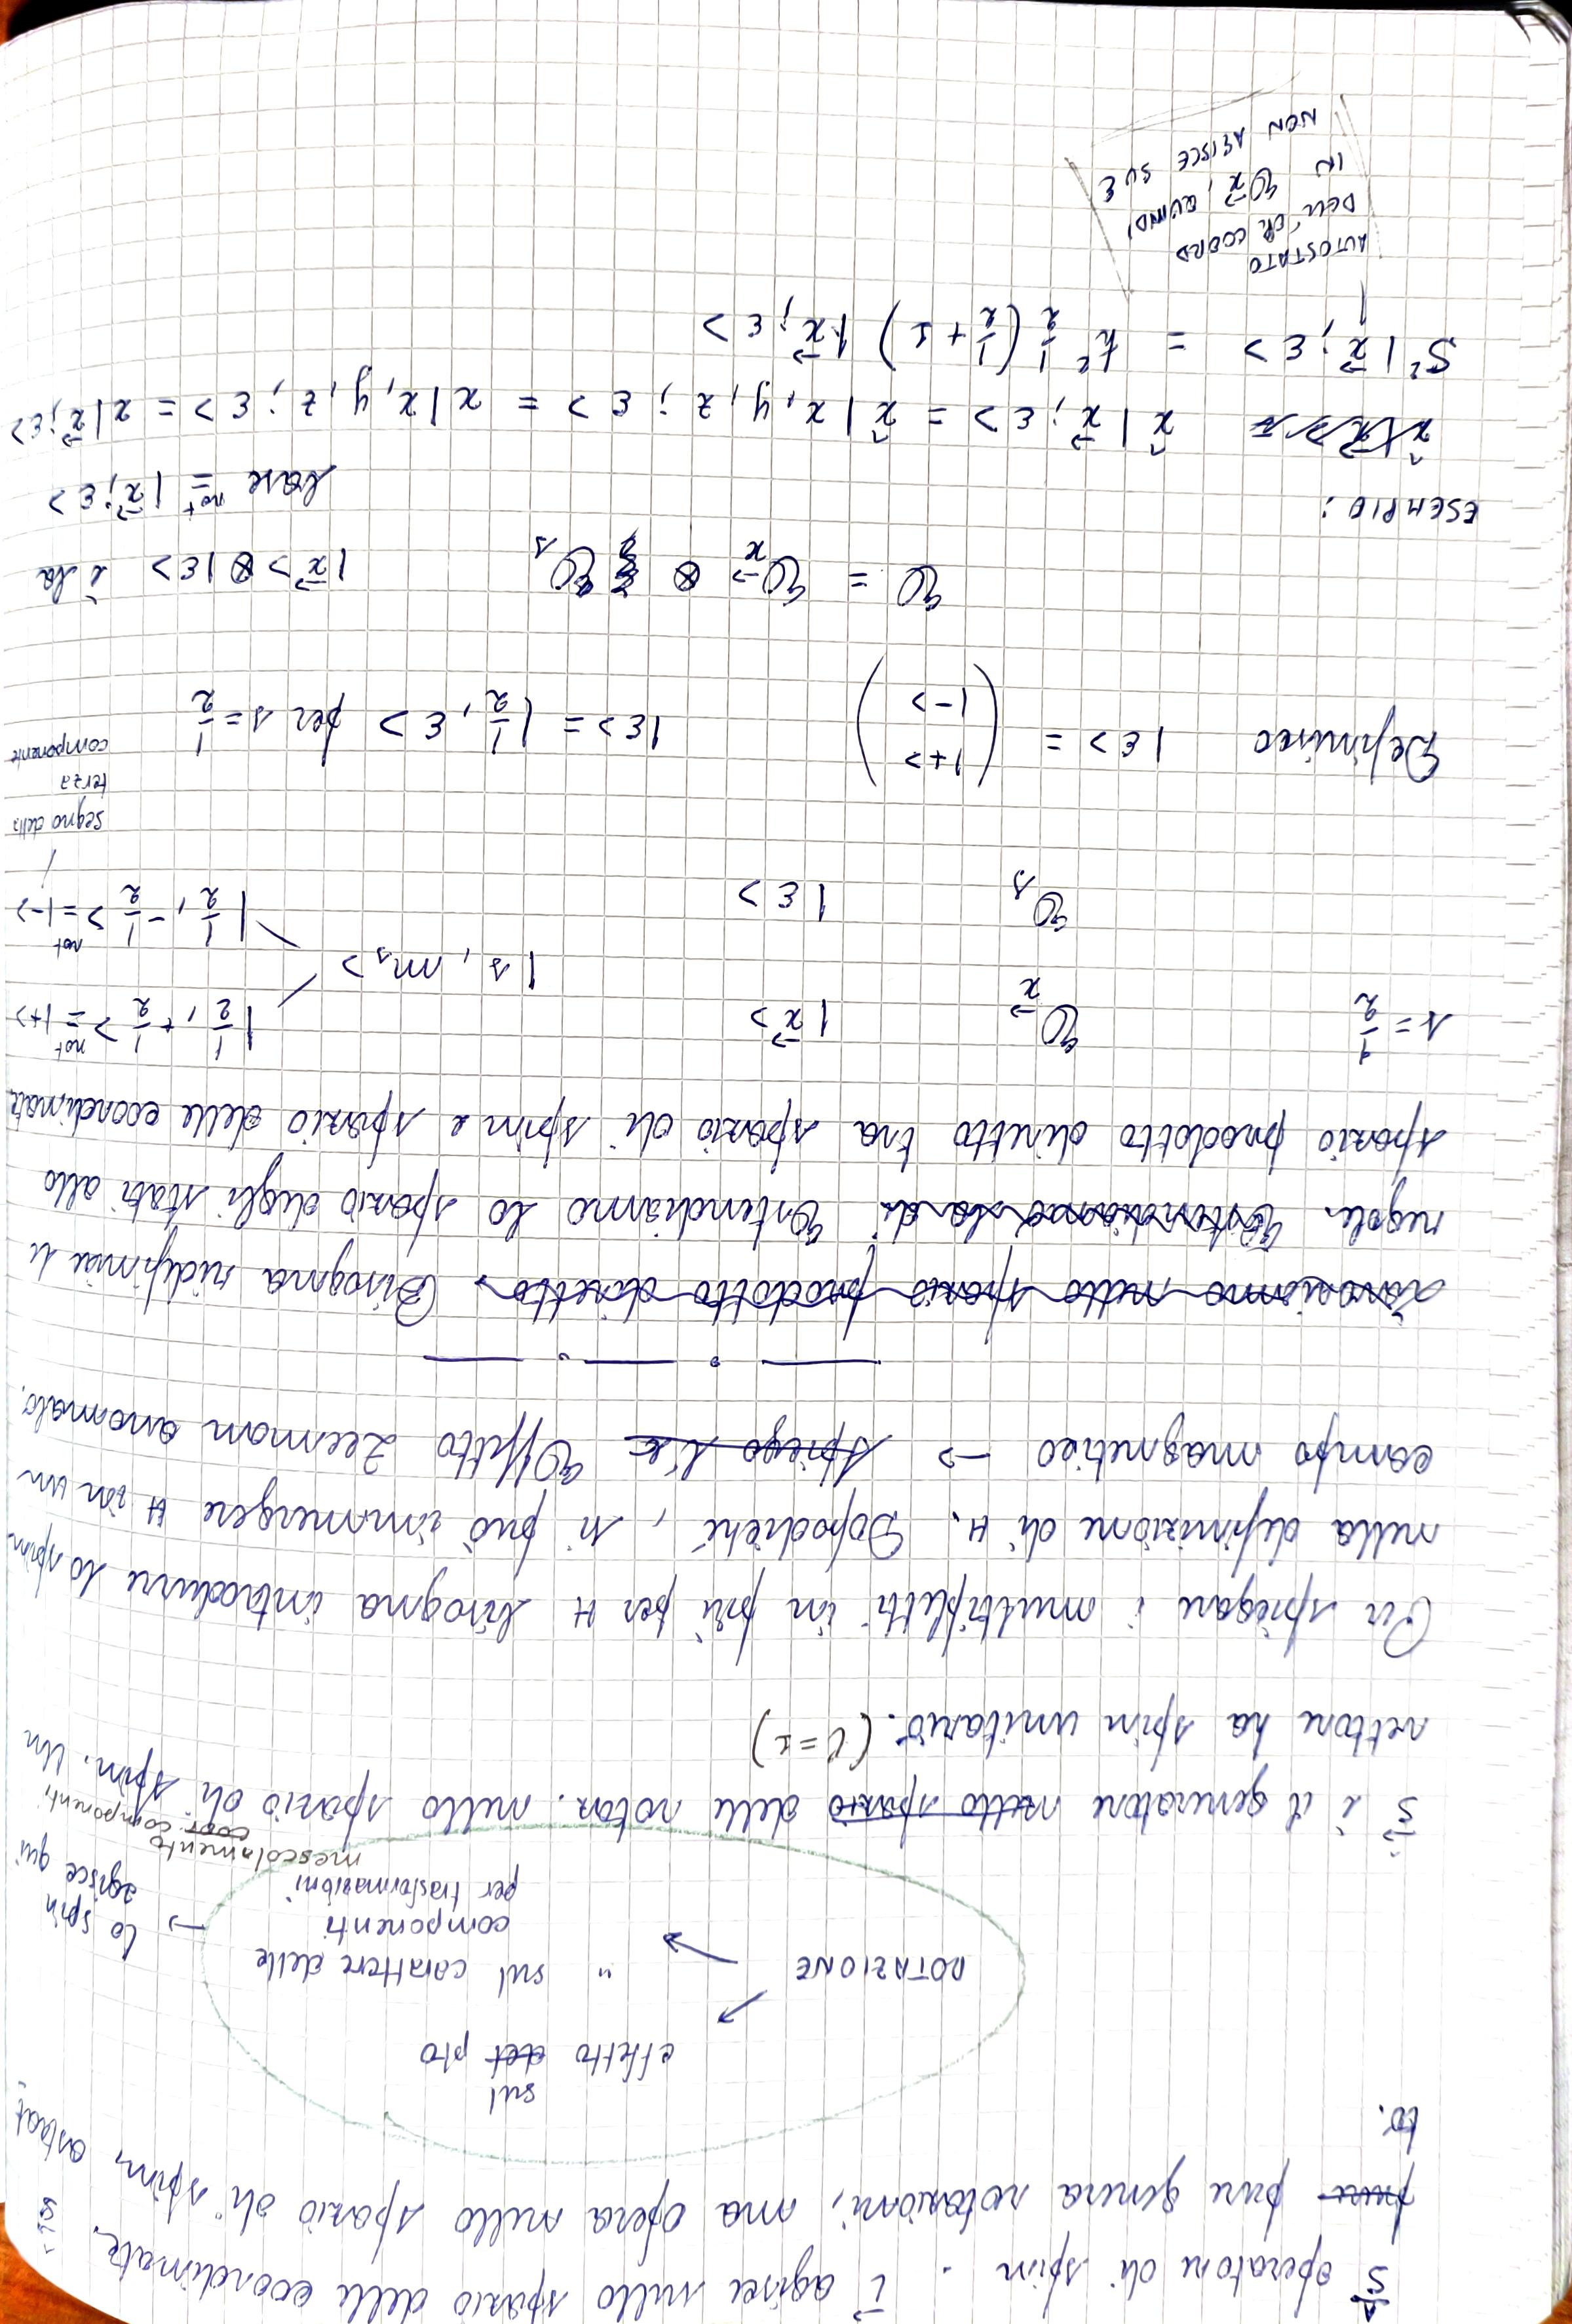 S⃗ operatore di spin. L⃗ agisce nello spazio delle coordinate.
pure pure genera rotazioni, ma opera nello spazio di spin, astrat-
to.
ROTAZIONE
effetto del sul pto
" sul carattere delle
componenti
per trasformazioni
→ lo spin
agisce qui
mescolamento
componenti
S⃗ è il generatore nello spazio delle rotaz. nello spazio di spin. Un
vettore ha spin unitario. (l=1)
Per spiegare i multipletti in più per H bisogna introdurre lo spin
nella definizione di H. Dopodiché, si può immergere H in un
campo magnetico → Effetto Zeeman anomalo.
Lavoriamo nello spazio prodotto diretto. Bisogna ridefinire le
regole. Estendiamo lo spazio degli stati allo
spazio prodotto diretto tra spazio di spin e spazio delle coordinate
s = 1/2
ℰ_x⃗ |x⃗>
ℰ_s |ε>
|s, m_s>
|1/2, +1/2> =^not |+>
|1/2, -1/2> =^not |->
segno della
terza
componente
Definisco |ε> = ( |+> |-> ) |ε> = |1/2, ε> per s = 1/2
ℰ = ℰ_x⃗ ⊗ ℰ_s |x⃗> ⊗ |ε> è la
base =^not |x⃗; ε>
ESEMPIO:
x̂ |x⃗; ε> = x̂ |x, y, z; ε> = x |x, y, z; ε> = x |x⃗; ε>
S² |x⃗; ε> = ħ² 1/2 (1/2 + 1) |x⃗; ε>
AUTOSTATO
DELL' COORD
IN ℰ_x⃗, QUINDI
NON AGISCE SU ε